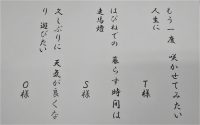 もう一度 咲かせてみたい
人生に
T様
はぴねでの 暮らす時間は
走馬燈
S様
久しぶりに 天気が良くな
り 遊びたい
O様